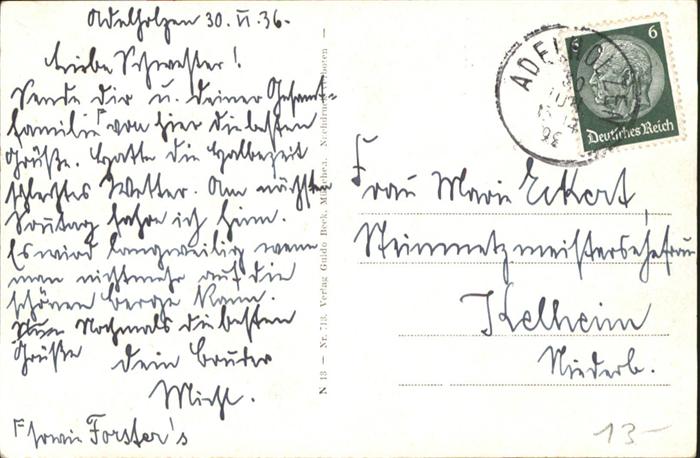 Adelholzen 30. VI. 36.
Liebe Schwester!
Sende dir u. deiner Gesamt-
familie ͏F von hier die besten
Grüße. Hatte die Halbezeit
schlechtes Wetter. Am nächsten
Sontag fahre ich Heim.
Es wird langweilig wenn
man nichtmehr auf die
schönen Berge kann.
Nun Nochmals die besten
Grüße dein Bruder
Michl.
F sowie Forster's
N 13 — Nr. 713. Verlag Guido Beck, München. Nachdruck verboten —
ADELHOLZEN
6
Deutsches Reich
Frau Marie Eckert,
Steinmetzmeistersehefrau
Kelheim
Niederb.
13-